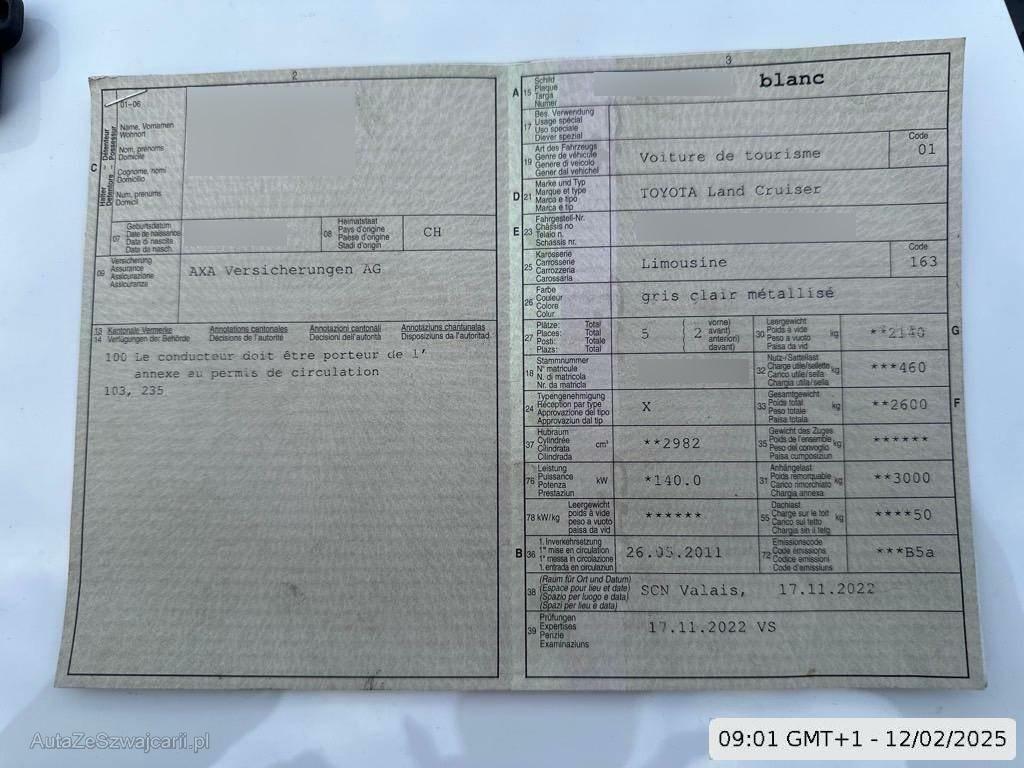 2
01-06
C
Halter
Détenteur
Detentore
Possessur
Name, Vornamen
Wohnort
Nom, prénoms
Domicile
Cognome, nomi
Domicilio
Num, prenums
Domicil
07
Geburtsdatum
Date de naissance
Data di nascita
Data da nasch.
08
Heimatstaat
Pays d'origine
Paese d'origine
Stadi d'origin
CH
09
Versicherung
Assurance
Assicurazione
Assicuranza
AXA Versicherungen AG
13
14
Kantonale Vermerke
Verfügungen der Behörde
Annotations cantonales
Décisions de l'autorité
Annotazioni cantonali
Decisioni dell'autorità
Annotaziuns chantunalas
Disposiziuns da l'autoritad
100 Le conducteur doit être porteur de l'
annexe au permis de circulation
103, 235
3
A
15
Schild
Plaque
Targa
Numer
blanc
17
Bes. Verwendung
Usage spécial
Uso speciale
Diever spezial
19
Art des Fahrzeugs
Genre de véhicule
Genere di veicolo
Gener dal vehichel
Voiture de tourisme
Code
01
D
21
Marke und Typ
Marque et type
Marca e tipo
Marca e tip
TOYOTA Land Cruiser
E
23
Fahrgestell-Nr.
Châssis no
Telaio n.
Schassis nr.
25
Karosserie
Carrosserie
Carrozzeria
Carossaria
Limousine
Code
163
26
Farbe
Couleur
Colore
Colur
gris clair métallisé
27
Plätze: Total
Places: Total
Posti: Totale
Plazs: Total
5
( 2
vorne)
avant)
anteriori)
davant)
30
Leergewicht
Poids à vide
Peso a vuoto
Paisa da vid
kg
**2140
G
18
Stammnummer
N° matricule
N. di matricola
Nr. da matricla
32
Nutz-/Sattellast
Charge utile/sellette
Carico utile/sella
Chargia utila/sella
kg
***460
24
Typengenehmigung
Réception par type
Approvazione del tipo
Approvaziun dal tip
X
33
Gesamtgewicht
Poids total
Peso totale
Paisa totala
kg
**2600
F
37
Hubraum
Cylindrée
Cilindrata
Cilindrada
cm³
**2982
35
Gewicht des Zuges
Poids de l'ensemble
Peso del convoglio
Paisa cumposiziun
kg
******
76
Leistung
Puissance
Potenza
Prestaziun
kW
*140.0
31
Anhängelast
Poids remorquable
Carico rimorchiato
Chargia annexa
kg
**3000
78 kW/kg
Leergewicht
poids à vide
peso a vuoto
paisa da vid
******
55
Dachlast
Charge sur le toit
Carico sul tetto
Chargia sin il tetg
kg
****50
B
36
1. Inverkehrsetzung
1re mise en circulation
1a messa in circolazione
1. entrada en circulaziun
26.05.2011
72
Emissionscode
Code émissions
Codice emissioni
Code d'emissiuns
***B5a
38
(Raum für Ort und Datum)
(Espace pour lieu et date)
(Spazio per luogo e data)
(Spazi per lieu e data)
SCN Valais, 17.11.2022
39
Prüfungen
Expertises
Perizie
Examinaziuns
17.11.2022 VS
AutaZeSzwajcarii.pl
09:01 GMT+1 - 12/02/2025